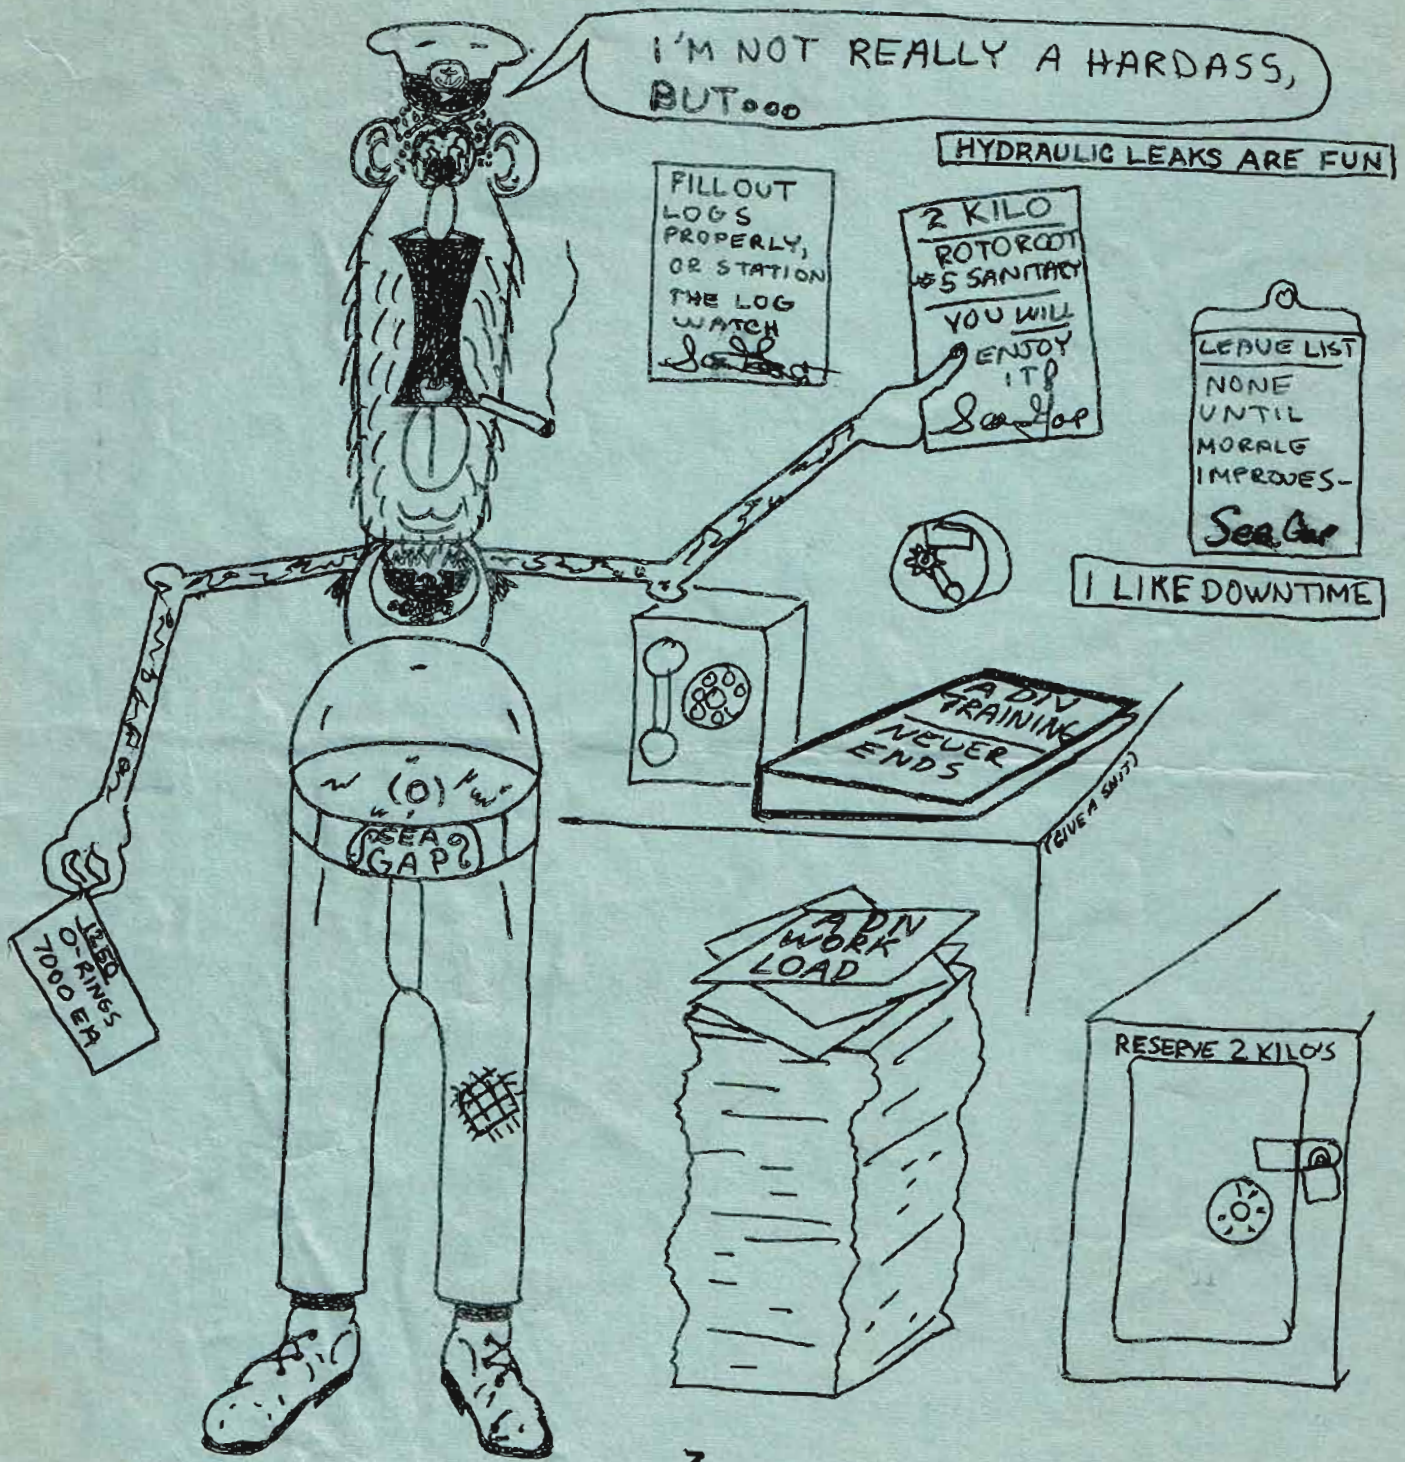 I'M NOT REALLY A HARDASS,
BUT...
HYDRAULIC LEAKS ARE FUN
FILL OUT
LOGS
PROPERLY,
OR STATION
THE LOG
WATCH
2 KILO
ROTOROOT
#5 SANITARY
YOU WILL
ENJOY
IT!
Sea Gap
LEAVE LIST
NONE
UNTIL
MORALE
IMPROVES-
Sea Gap
I LIKE DOWNTIME
A DIV
TRAINING
NEVER
ENDS
(GIVE A SHIT)
SEA
GAP
1250
O-RINGS
7000 EA
A DIV
WORK
LOAD
RESERVE 2 KILO'S